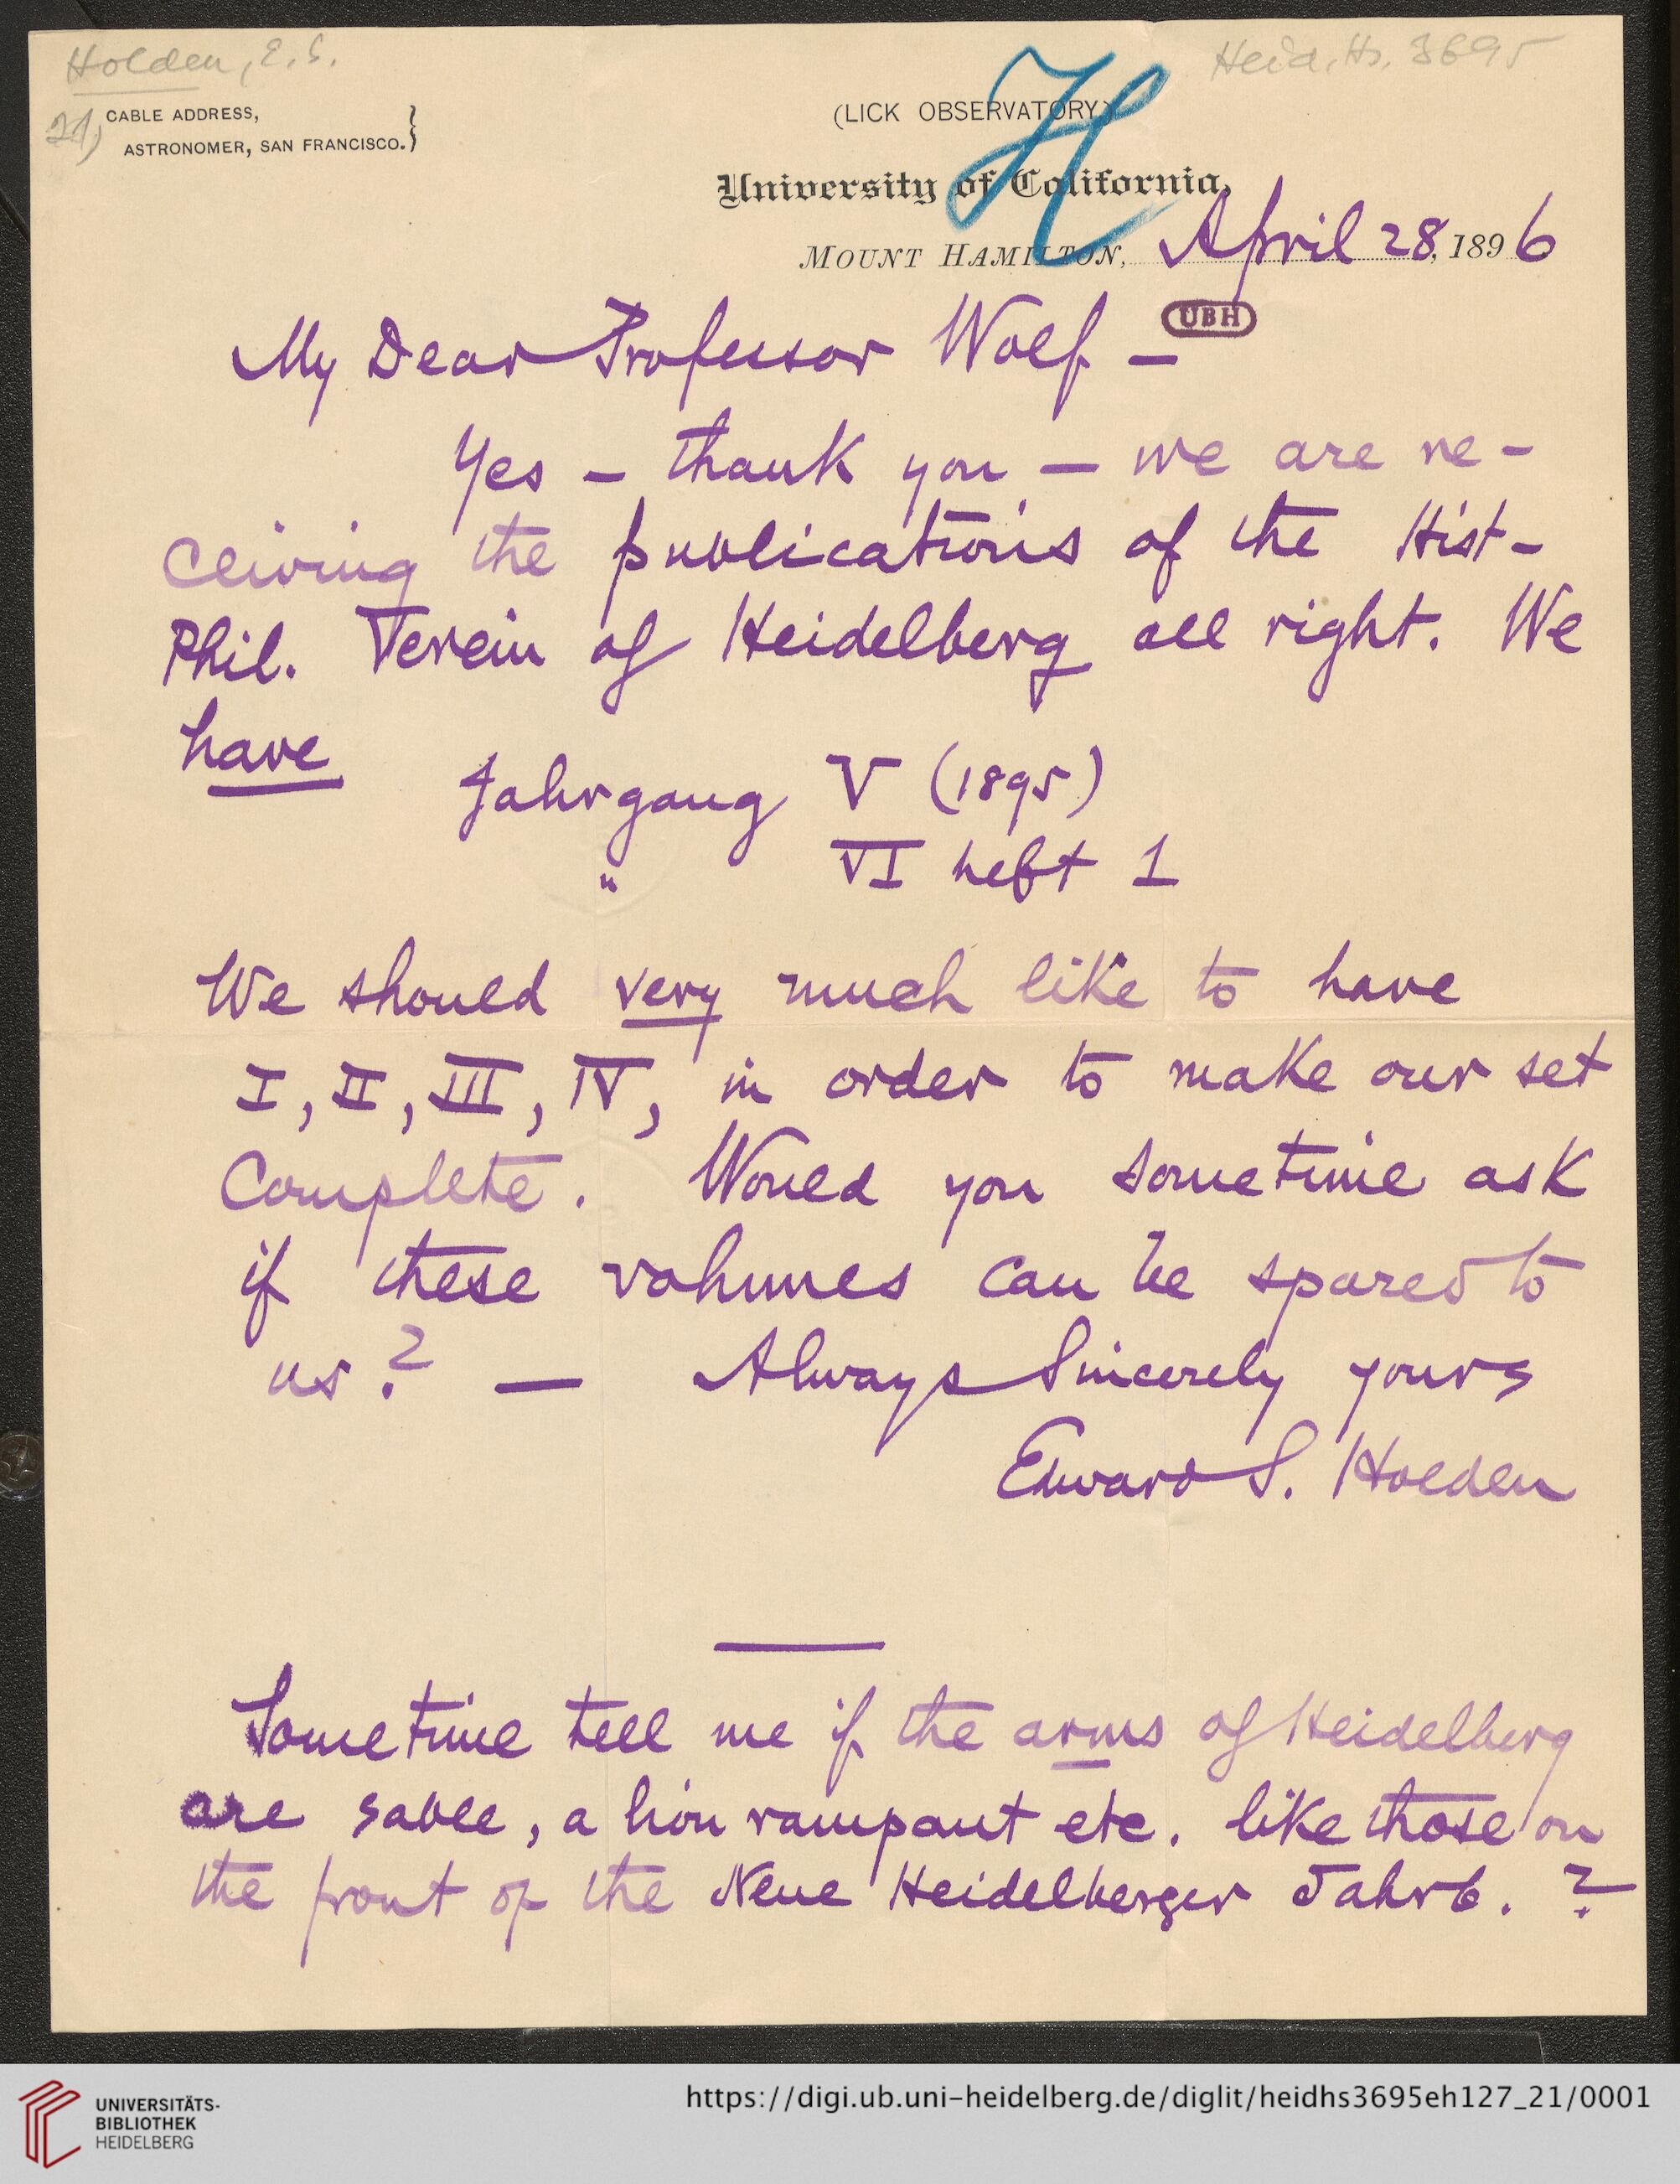 Holden, E. S.
Heid. Hs. 3695
21)
CABLE ADDRESS,
ASTRONOMER, SAN FRANCISCO.}
(LICK OBSERVATORY)
H
University of California,
MOUNT HAMILTON, April 28, 1896
UBH
My Dear Professor Wolf —
Yes – thank you — we are re-
ceiving the publications of the Hist-
Phil. Verein of Heidelberg all right. We
have Jahrgang V (1895)
" VI heft 1
We should very much like to have
I, II, III, IV, in order to make our set
Complete. Would you sometime ask
if these volumes can be spared to
us? — Always Sincerely yours
Edward S. Holden
Sometime tell me if the arms of Heidelberg
are sable, a lion rampant etc. like those on
the front of the Neue Heidelberger Jahrb. ?
UNIVERSITÄTS-
BIBLIOTHEK
HEIDELBERG
https://digi.ub.uni-heidelberg.de/diglit/heidhs3695eh127_21/0001